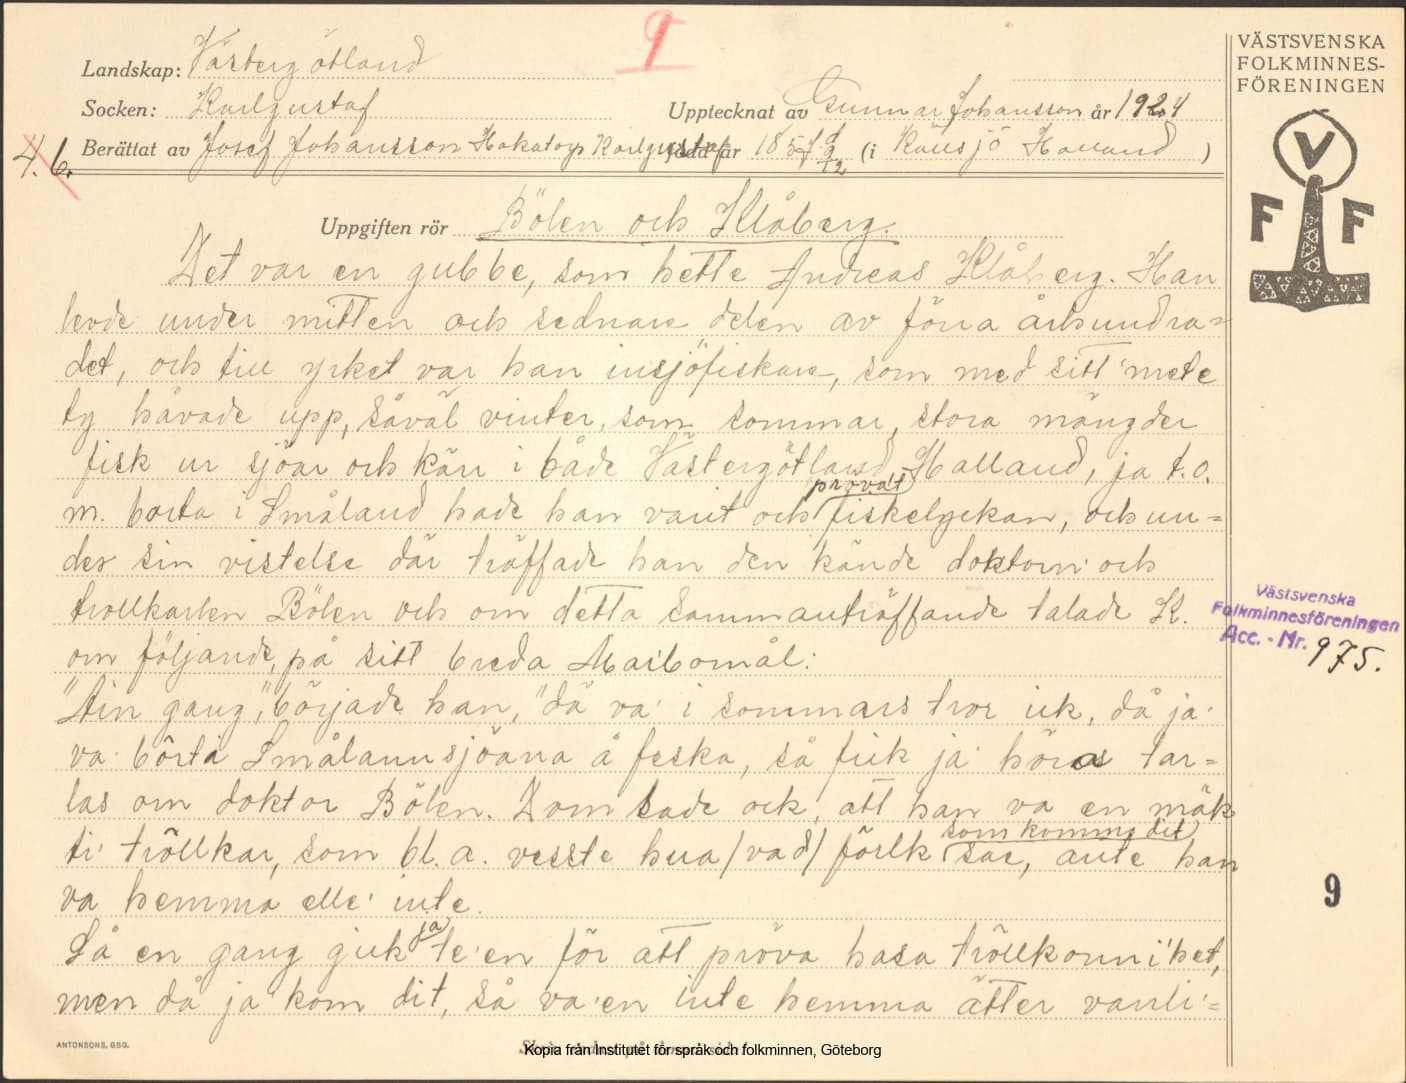 9
VÄSTSVENSKA
FOLKMINNES-
FÖRENINGEN
Landskap: Västergötland
Socken: Karlgustaf
Upptecknat av Gunnar Johansson år 1924
Berättat av Josef Johansson Hakatorp Karlgustaf född år 1857 9/12 (i Källsjö Halland)
4. 6.
V
F F
Uppgiften rör Bölen och Klåberg.
Det var en gubbe, som hette Andreas Klåberg. Han
levde under mitten och sednare delen av förra århundra=
det, och till yrket var han insjöfiskare, som med sitt mete
ty håvade upp, såväl vinter, som sommar, stora mängder
fisk ur sjöar och kärr i både Västergötland, Halland, ja t.o.
m. borta i Småland hade han varit och prövat fiskelyckan, och un=
der sin vistelse där träffade han den kände doktorn och
trollkarlen Bölen och om detta sammanträffande talade K.
om följande, på sitt breda Marbomål:
"Ain gang", började han, "då va' i sommars tror iek, då ja'
va' bôrta Smålannsjöana å feska, så fick ja' höras tar=
las om doktor Bölen. Dom sade ock, att han va en mäk
ti' trôllkar, som bl. a. vesste hua /vad/ förlk som komme dit sae, ante han
va hemma elle' inte.
Så en gang gick ja te'en för att pröva hasa trôllkonni'het,
men då ja' kom dit, så va'en inte hemma ätter vanli'=
Västsvenska
Folkminnesföreningen
Acc. - Nr. 975.
9
ANTONSONS, GBG.
Kopia från Institutet för språk och folkminnen, Göteborg